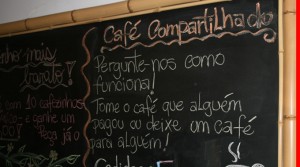 Café Compartilhado
Pergunte-nos como
funciona!
Tome o café que alguém
pagou ou deixe um café
para alguém!
mais
trajeto!
10 cafezinhos
e ganhe um
já o